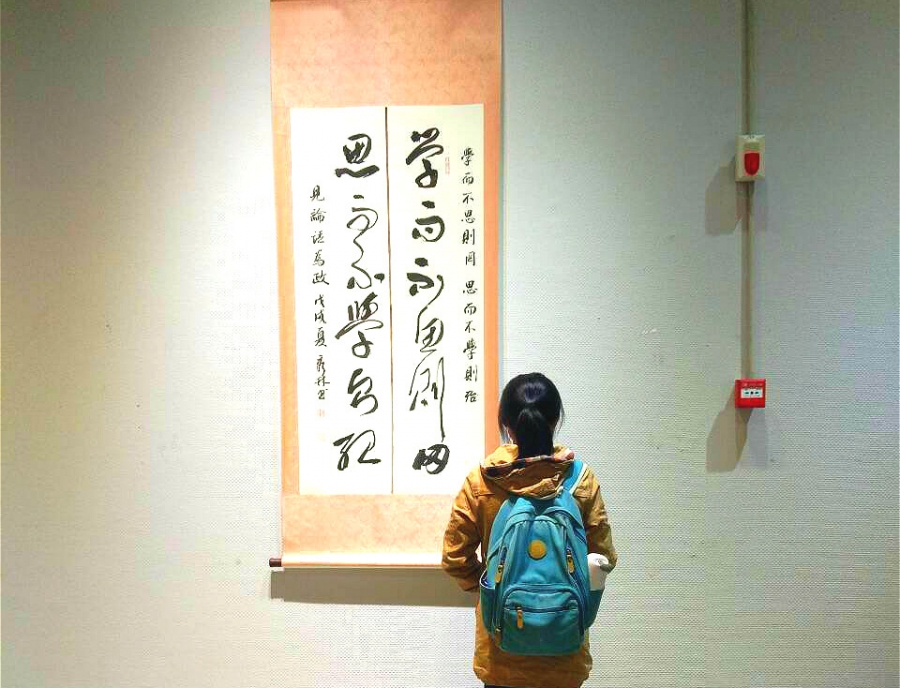 學而不思則罔 思而不學則殆
学而不思則罔
思而不學則殆
見論語為政 戊戌夏